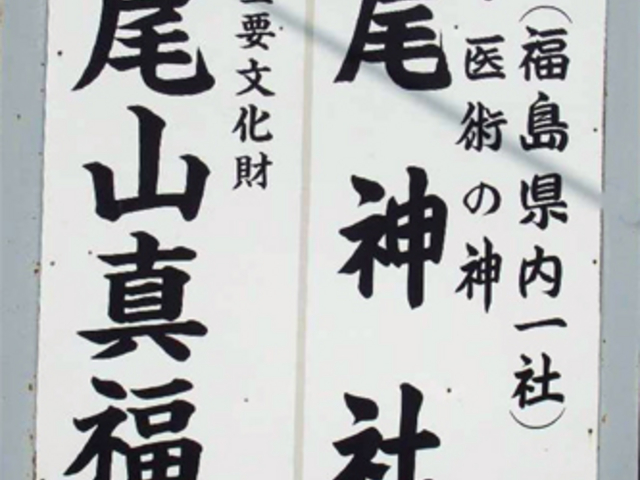 (福島県内一社)
医術の神
尾神社
要文化財
尾山真福